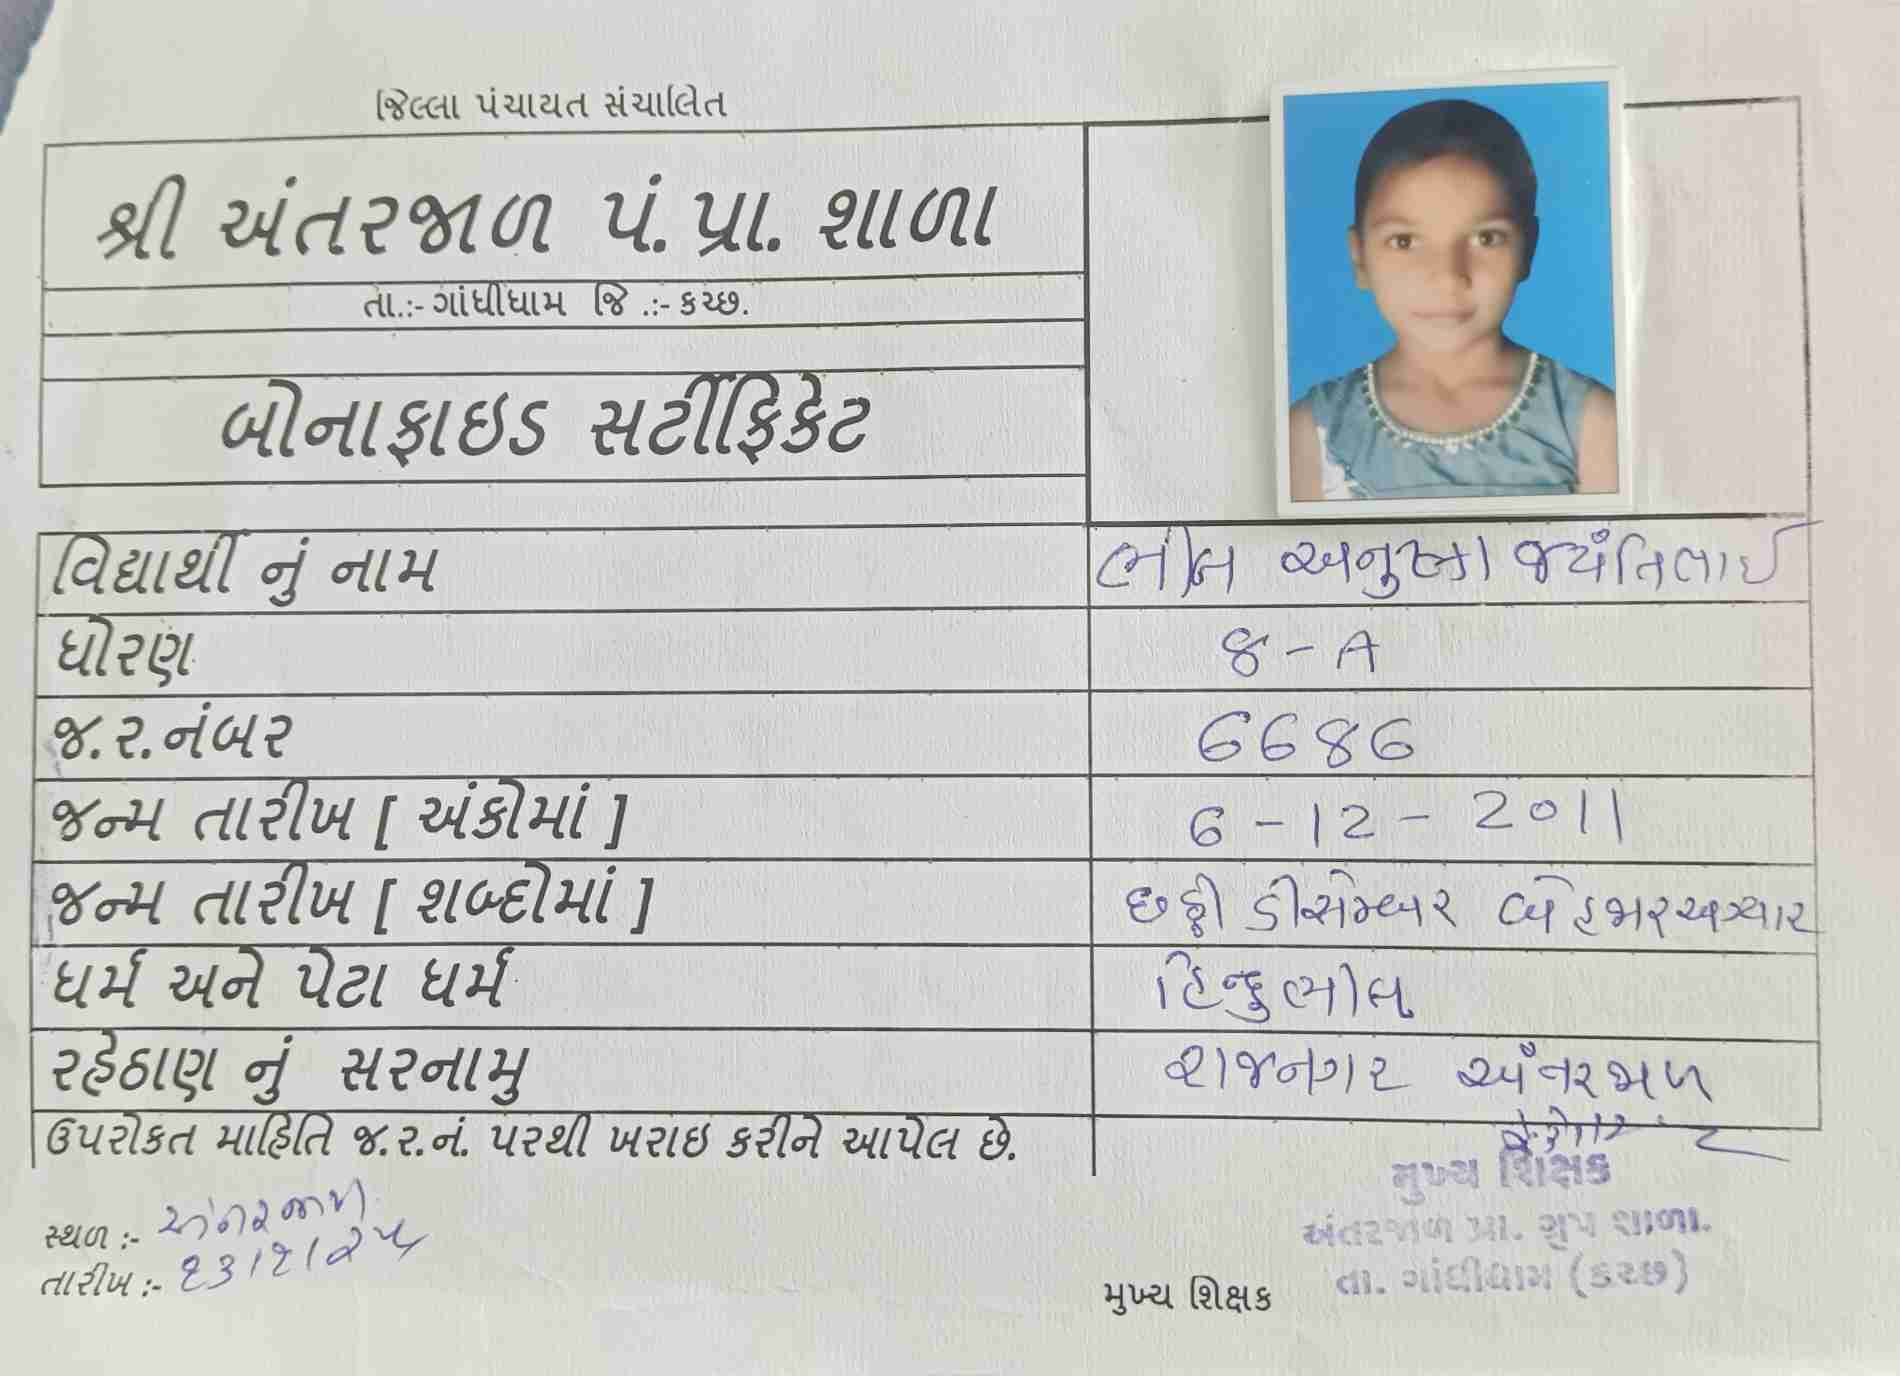 જિલ્લા પંચાયત સંચાલિત
શ્રી અંતરજાળ પં. પ્રા. શાળા
તા.:- ગાંધીધામ જિ .:- કચ્છ.
બોનાફાઇડ સર્ટીફિકેટ
વિદ્યાર્થી નું નામ ભીલ જ્યંતિભાઈ
ધોરણ ૪-A
જ.ર.નંબર 6686
જન્મ તારીખ [ અંકોમાં ] 6-12-2011
જન્મ તારીખ [ શબ્દોમાં ] છઠ્ઠી ડીસેમ્બર બે હજાર અગ્યાર
ધર્મ અને પેટા ધર્મ હિન્દુ ભીલ
રહેઠાણ નું સરનામુ રાજનગર અંતરજાળ
ઉપરોકત માહિતિ જ.ર.નં. પરથી ખરાઇ કરીને આપેલ છે.
સ્થળ :- અંતરજાળ
તારીખ :- ૧૩/૧/૨૫
મુખ્ય શિક્ષક
અંતરજાળ પ્રા. ગ્રુપ શાળા.
તા. ગાંધીધામ (કચ્છ)
મુખ્ય શિક્ષક